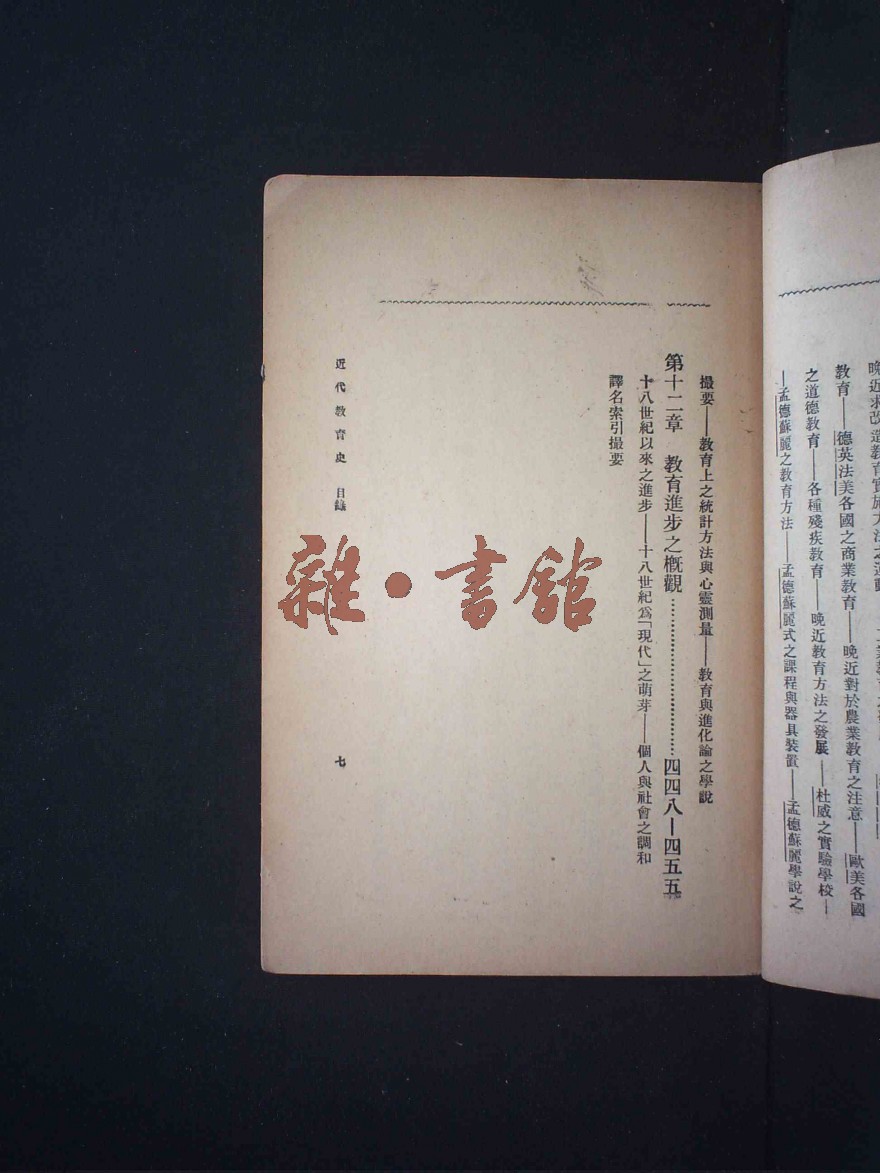 晚近求改造教育實施方法之運動
教育——德英法美各國之商業教育——晚近對於農業教育之注意——歐美各國
之道德教育——各種殘疾教育——晚近教育方法之發展——杜威之實驗學校—
—孟德蘇麗之教育方法——孟德蘇麗式之課程與器具裝置——孟德蘇麗學說之
撮要——教育上之統計方法與心靈測量——教育與進化論之學說
第十二章　教育進步之概觀…………………………四四八—四五五
十八世紀以來之進步——十八世紀爲「現代」之萌芽——個人與社會之調和
譯名索引撮要
近代教育史　目錄
七
雜·書館